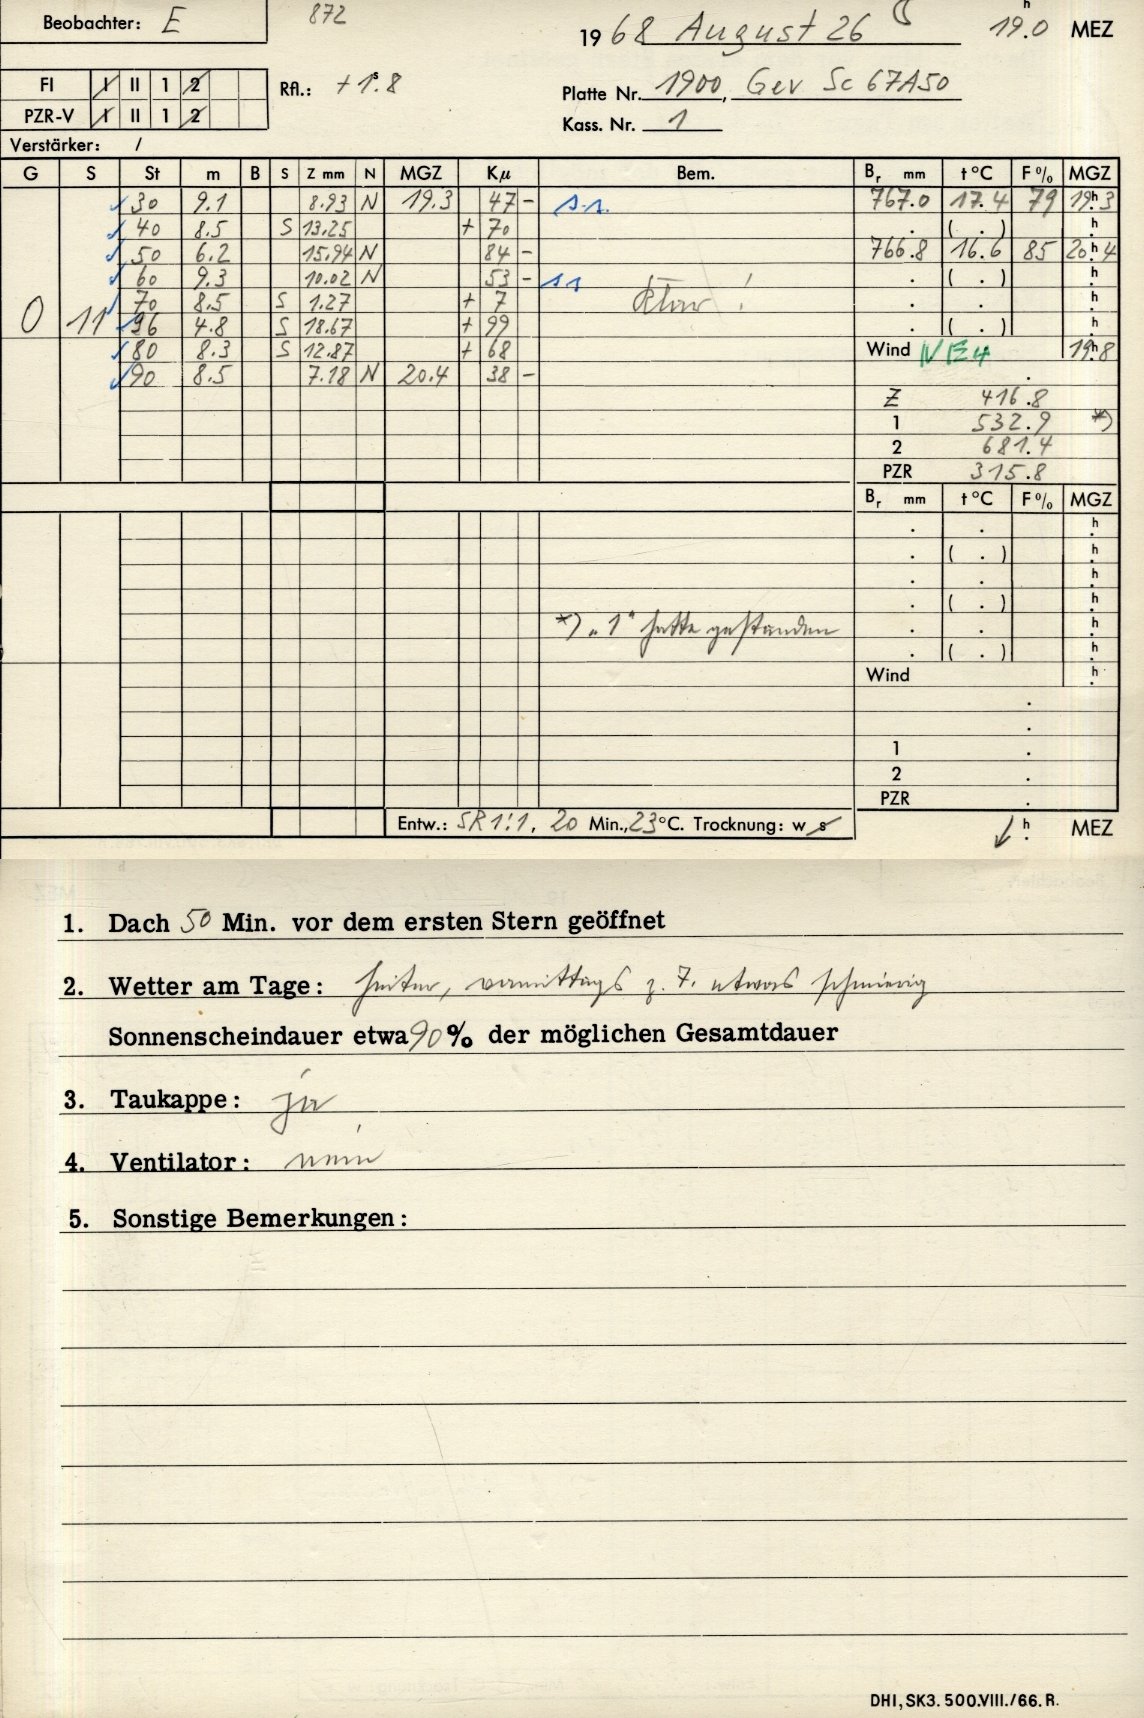 Beobachter: E 872 1968 August 26 19.0 h MEZ
FI I II 1 2 Rfl.: +1s.8 Platte Nr. 1900, Gev Sc 67A50
PZR-V I II 1 2 Kass. Nr. 1
Verstärker: /
G S St m B S Z mm N MGZ Kµ Bem. Br mm t °C F % MGZ
30 9.1 8.93 N 19.3 47 - s.s. 767.0 17.4 79 19h3
40 8.5 S 13.25 + 70 . ( . ) h
50 6.2 15.94 N 84 - 766.8 16.6 85 20h4
60 9.3 10.02 N 53 - ss . ( . ) h
70 8.5 S 1.27 + 7 klar ! . . h
0 11 96 4.8 S 18.67 + 99 . ( . ) h
80 8.3 S 12.87 + 68 Wind NE4 19h8
90 8.5 7.18 N 20.4 38 - .
Z 416.8
1 532.9 *)
2 681.4
PZR 315.8
Br mm t °C F % MGZ
. . h
. ( . ) h
. . h
. ( . ) h
*) „1" hatte gestanden . . h
. ( . ) h
Wind h
.
.
1 .
2 .
PZR .
Entw.: SR 1:1, 20 Min., 23 °C. Trocknung: w s h MEZ
1. Dach 50 Min. vor dem ersten Stern geöffnet
2. Wetter am Tage: heiter, vormittags z. T. etwas schmierig
Sonnenscheindauer etwa 90 % der möglichen Gesamtdauer
3. Taukappe: ja
4. Ventilator: nein
5. Sonstige Bemerkungen:
DHI, SK3. 500.VIII./66. R.